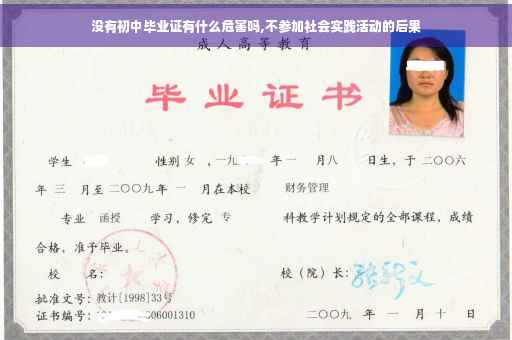 没有初中毕业证有什么危害吗,不参加社会实践活动的后果
成人高等教育
毕业证书
学生 性别 女 ,一九 年一 月八 日生，于二〇〇六
年 三 月至二〇〇九年 一 月在本校 财务管理
专业 函授 学习，修完 专 科教学计划规定的全部课程，成绩
合格，准予毕业。
校 名: 校（院）长:
批准文号: 教计[1998]33号
证书编号: 06001310 二〇〇九 年 一 月 十 日